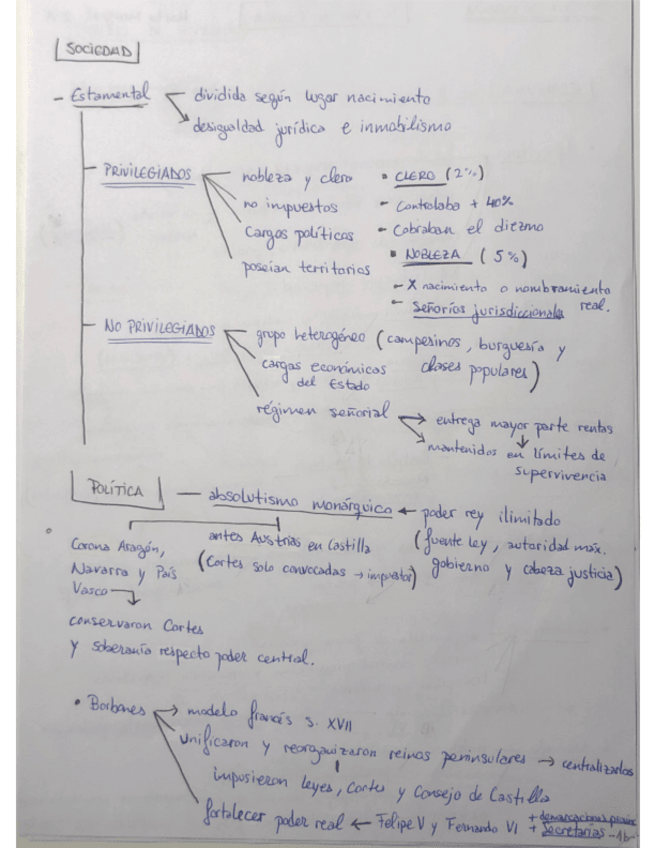 SOCIEDAD
- Estamental → dividida según lugar nacimiento
→ desigualdad jurídica e inmobilismo
PRIVILEGIADOS
nobleza y clero
no impuestos
cargos políticos
poseían territorios
• CLERO (2%)
- Controlaba + 40%
- Cobraban el diezmo
• NOBLEZA (5%)
- X nacimiento o nombramiento real.
- Señoríos jurisdiccionales
NO PRIVILEGIADOS
grupo heterogéneo (campesinos, burguesía y
clases populares)
cargas económicas
del Estado
régimen señorial → entrega mayor parte rentas
→ mantenidos en límites de
supervivencia
POLÍTICA — absolutismo monárquico ← poder rey ilimitado
(fuente ley, autoridad máx.
gobierno y cabeza justicia)
antes Austrias en Castilla
(Cortes solo convocadas → impuestos)
Corona Aragón,
Navarra y País
Vasco →
conservaron Cortes
y soberanía respecto poder central.
• Borbones → modelo francés s. XVII
unificaron y reorganizaron reinos peninsulares → centralizarlos
impusieron leyes, Cortes y Consejo de Castilla
fortalecer poder real ← Felipe V y Fernando VI + demarcaciones
+ Secretarías